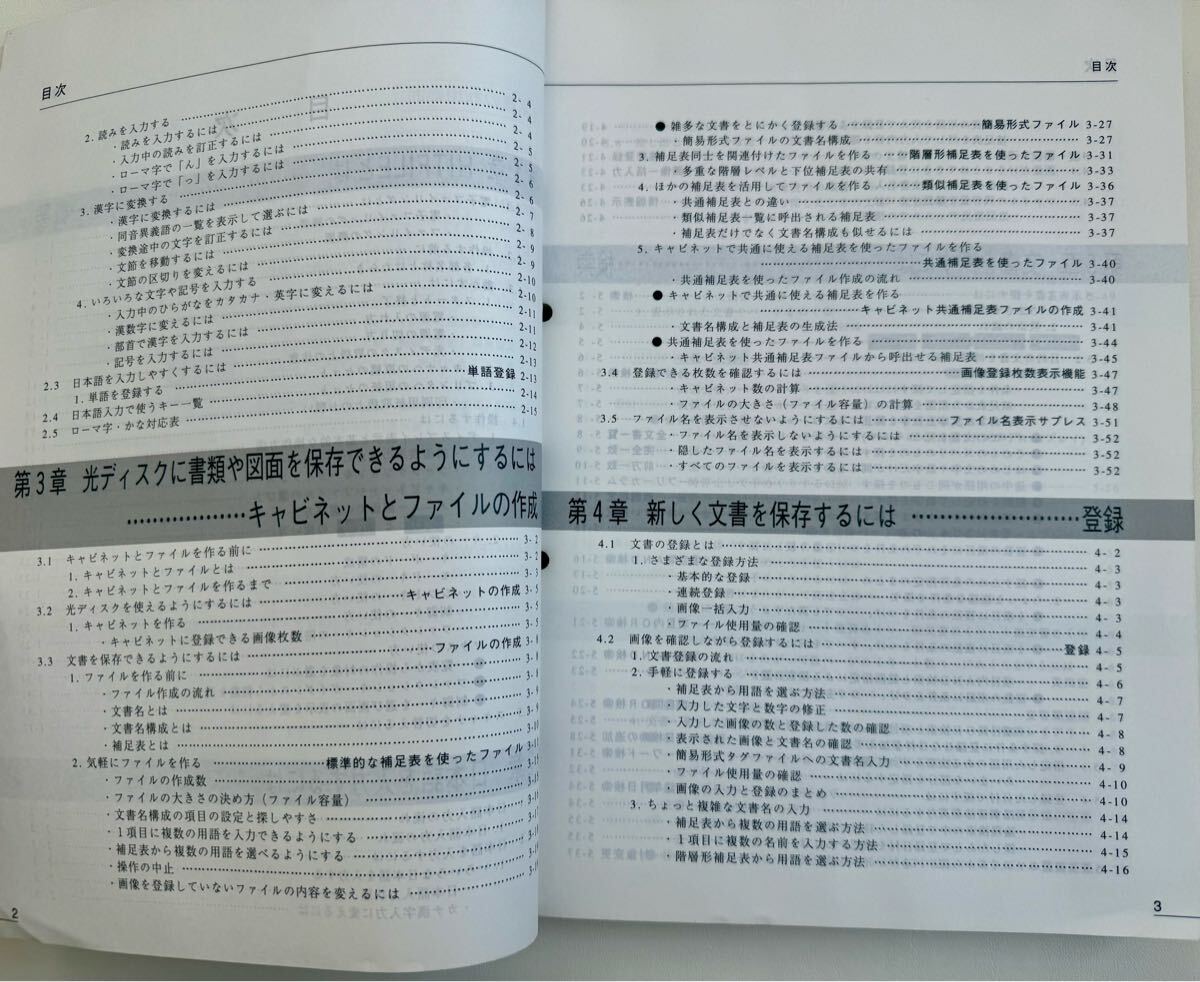 目次
2. 読みを入力する ……… 2- 4
・読みを入力するには ……… 2- 4
・入力中の読みを訂正するには ……… 2- 4
・ローマ字で「ん」を入力するには ……… 2- 5
・ローマ字で「っ」を入力するには ……… 2- 5
3. 漢字に変換する ……… 2- 6
・漢字に変換するには ……… 2- 6
・同音異義語の一覧を表示して選ぶには ……… 2- 7
・変換途中の文字を訂正するには ……… 2- 8
・文節を移動するには ……… 2- 9
・文節の区切りを変えるには ……… 2- 9
4. いろいろな文字や記号を入力する ……… 2-10
・入力中のひらがなをカタカナ・英字に変えるには ……… 2-10
・漢数字に変えるには ……… 2-11
・部首で漢字を入力するには ……… 2-11
・記号を入力するには ……… 2-12
2.3 日本語を入力しやすくするには ……… 2-13
1. 単語を登録する ……… 単語登録 2-13
2.4 日本語入力で使うキー一覧 ……… 2-14
2.5 ローマ字・かな対応表 ……… 2-15
第3章 光ディスクに書類や図面を保存できるようにするには
……… キャビネットとファイルの作成
3.1 キャビネットとファイルを作る前に ……… 3- 2
1. キャビネットとファイルとは ……… 3- 2
2. キャビネットとファイルを作るまで ……… 3- 3
3.2 光ディスクを使えるようにするには ……… キャビネットの作成 3- 5
1. キャビネットを作る ……… 3- 5
・キャビネットに登録できる画像枚数 ……… 3- 5
3.3 文書を保存できるようにするには ……… ファイルの作成 3-
1. ファイルを作る前に ……… 3-
・ファイル作成の流れ ……… 3-
・文書名とは ……… 3-
・文書名構成とは ……… 3-
・補足表とは ……… 3-
2. 気軽にファイルを作る ……… 標準的な補足表を使ったファイル 3-
・ファイルの作成数 ……… 3-
・ファイルの大きさの決め方（ファイル容量） ……… 3-
・文書名構成の項目の設定と探しやすさ ……… 3-
・1項目に複数の用語を入力できるようにする ……… 3-
・補足表から複数の用語を選べるようにする ……… 3-
・操作の中止 ……… 3-
・画像を登録していないファイルの内容を変えるには ……… 3-
2
目次
● 雑多な文書をとにかく登録する ……… 簡易形式ファイル 3-27
・簡易形式ファイルの文書名構成 ……… 3-27
3. 補足表同士を関連付けたファイルを作る ……… 階層形補足表を使ったファイル 3-31
・多重な階層レベルと下位補足表の共有 ……… 3-33
4. ほかの補足表を活用してファイルを作る ……… 類似補足表を使ったファイル 3-36
・共通補足表との違い ……… 3-37
・類似補足表一覧に呼出される補足表 ……… 3-37
・補足表だけでなく文書名構成も似せるには ……… 3-37
5. キャビネットで共通に使える補足表を使ったファイルを作る
……… 共通補足表を使ったファイル 3-40
・共通補足表を使ったファイル作成の流れ ……… 3-40
● キャビネットで共通に使える補足表を作る
……… キャビネット共通補足表ファイルの作成 3-41
・文書名構成と補足表の生成法 ……… 3-41
● 共通補足表を使ったファイルを作る ……… 3-44
・キャビネット共通補足表ファイルから呼出せる補足表 ……… 3-45
3.4 登録できる枚数を確認するには ……… 画像登録枚数表示機能 3-47
・キャビネット数の計算 ……… 3-47
・ファイルの大きさ（ファイル容量）の計算 ……… 3-48
3.5 ファイル名を表示させないようにするには ……… ファイル名表示サプレス 3-51
・ファイル名を表示しないようにするには ……… 3-52
・隠したファイル名を表示するには ……… 3-52
・すべてのファイルを表示するには ……… 3-52
第4章 新しく文書を保存するには ……… 登録
4.1 文書の登録とは ……… 4- 2
1. さまざまな登録方法 ……… 4- 3
・基本的な登録 ……… 4- 3
・連続登録 ……… 4- 3
・画像一括入力 ……… 4- 3
・ファイル使用量の確認 ……… 4- 4
4.2 画像を確認しながら登録するには ……… 登録 4- 5
1. 文書登録の流れ ……… 4- 5
2. 手軽に登録する ……… 4- 6
・補足表から用語を選ぶ方法 ……… 4- 7
・入力した文字と数字の修正 ……… 4- 7
・入力した画像の数と登録した数の確認 ……… 4- 8
・表示された画像と文書名の確認 ……… 4- 8
・簡易形式タグファイルへの文書名入力 ……… 4- 9
・ファイル使用量の確認 ……… 4-10
・画像の入力と登録のまとめ ……… 4-10
3. ちょっと複雑な文書名の入力 ……… 4-14
・補足表から複数の用語を選ぶ方法 ……… 4-14
・1項目に複数の名前を入力する方法 ……… 4-15
・階層形補足表から用語を選ぶ方法 ……… 4-16
3